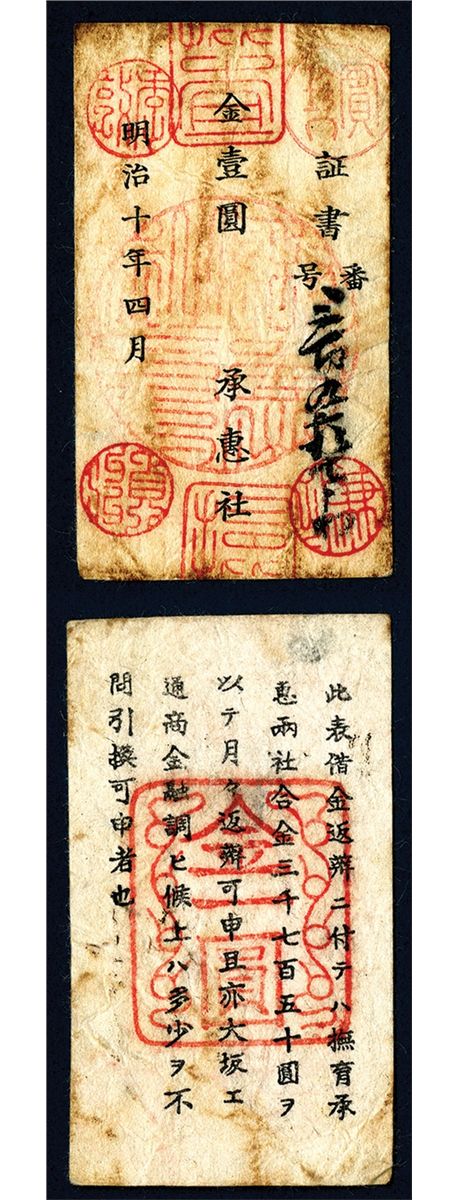 証書
番号
金壹圓
承惠社
明治十年四月
此表借金返辨ニ付テハ撫育承
惠兩社合金三千七百五十圓ヲ
以テ月々返辨可申且亦大坂エ
通商金融調ヒ候上ハ多少ヲ不
問引換可申者也
金一圓